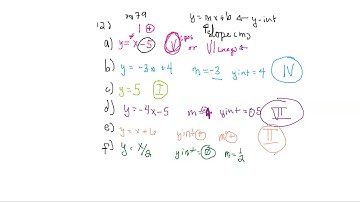 m79
y = mx+b ← y-int
12)
1 +
slope (m)
a) y = x-5 V pos or VI (neg) ←
b) y = -3x +4 m = -3 y int = 4 IV
c) y = 5 I
d) y = -4x-5 m = -4 y int = -5 VII
e) y = x+6 y int = + m = + II
f) y = x/2 y int = 0 m = 1/2